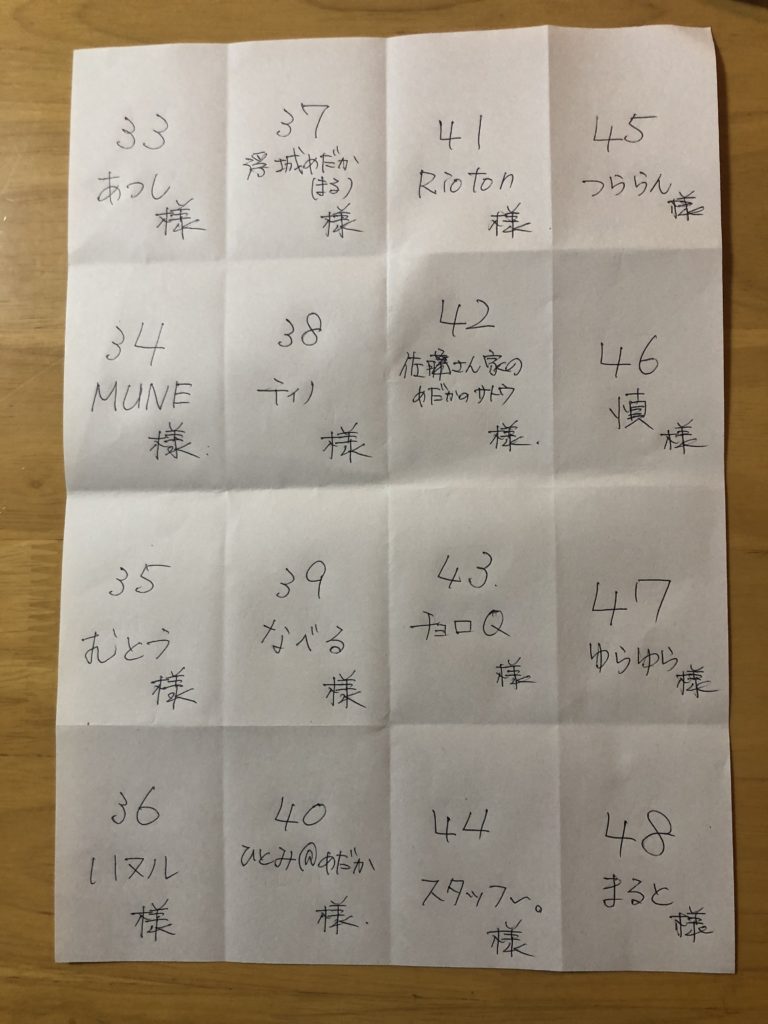 33
あつし
様
37
浮城めだか
(まる)
様
41
Rioton
様
45
つららん
様
34
MUNE
様
38
ティノ
様
42
佐藤さん家の
めだかのサトウ
様
46
慎
様
35
むとう
様
39
なべる
様
43
チョロQ
様
47
ゆらゆら
様
36
いヌル
様
40
ひとみ@めだか
様
44
スタッフ〜。
様
48
まると
様